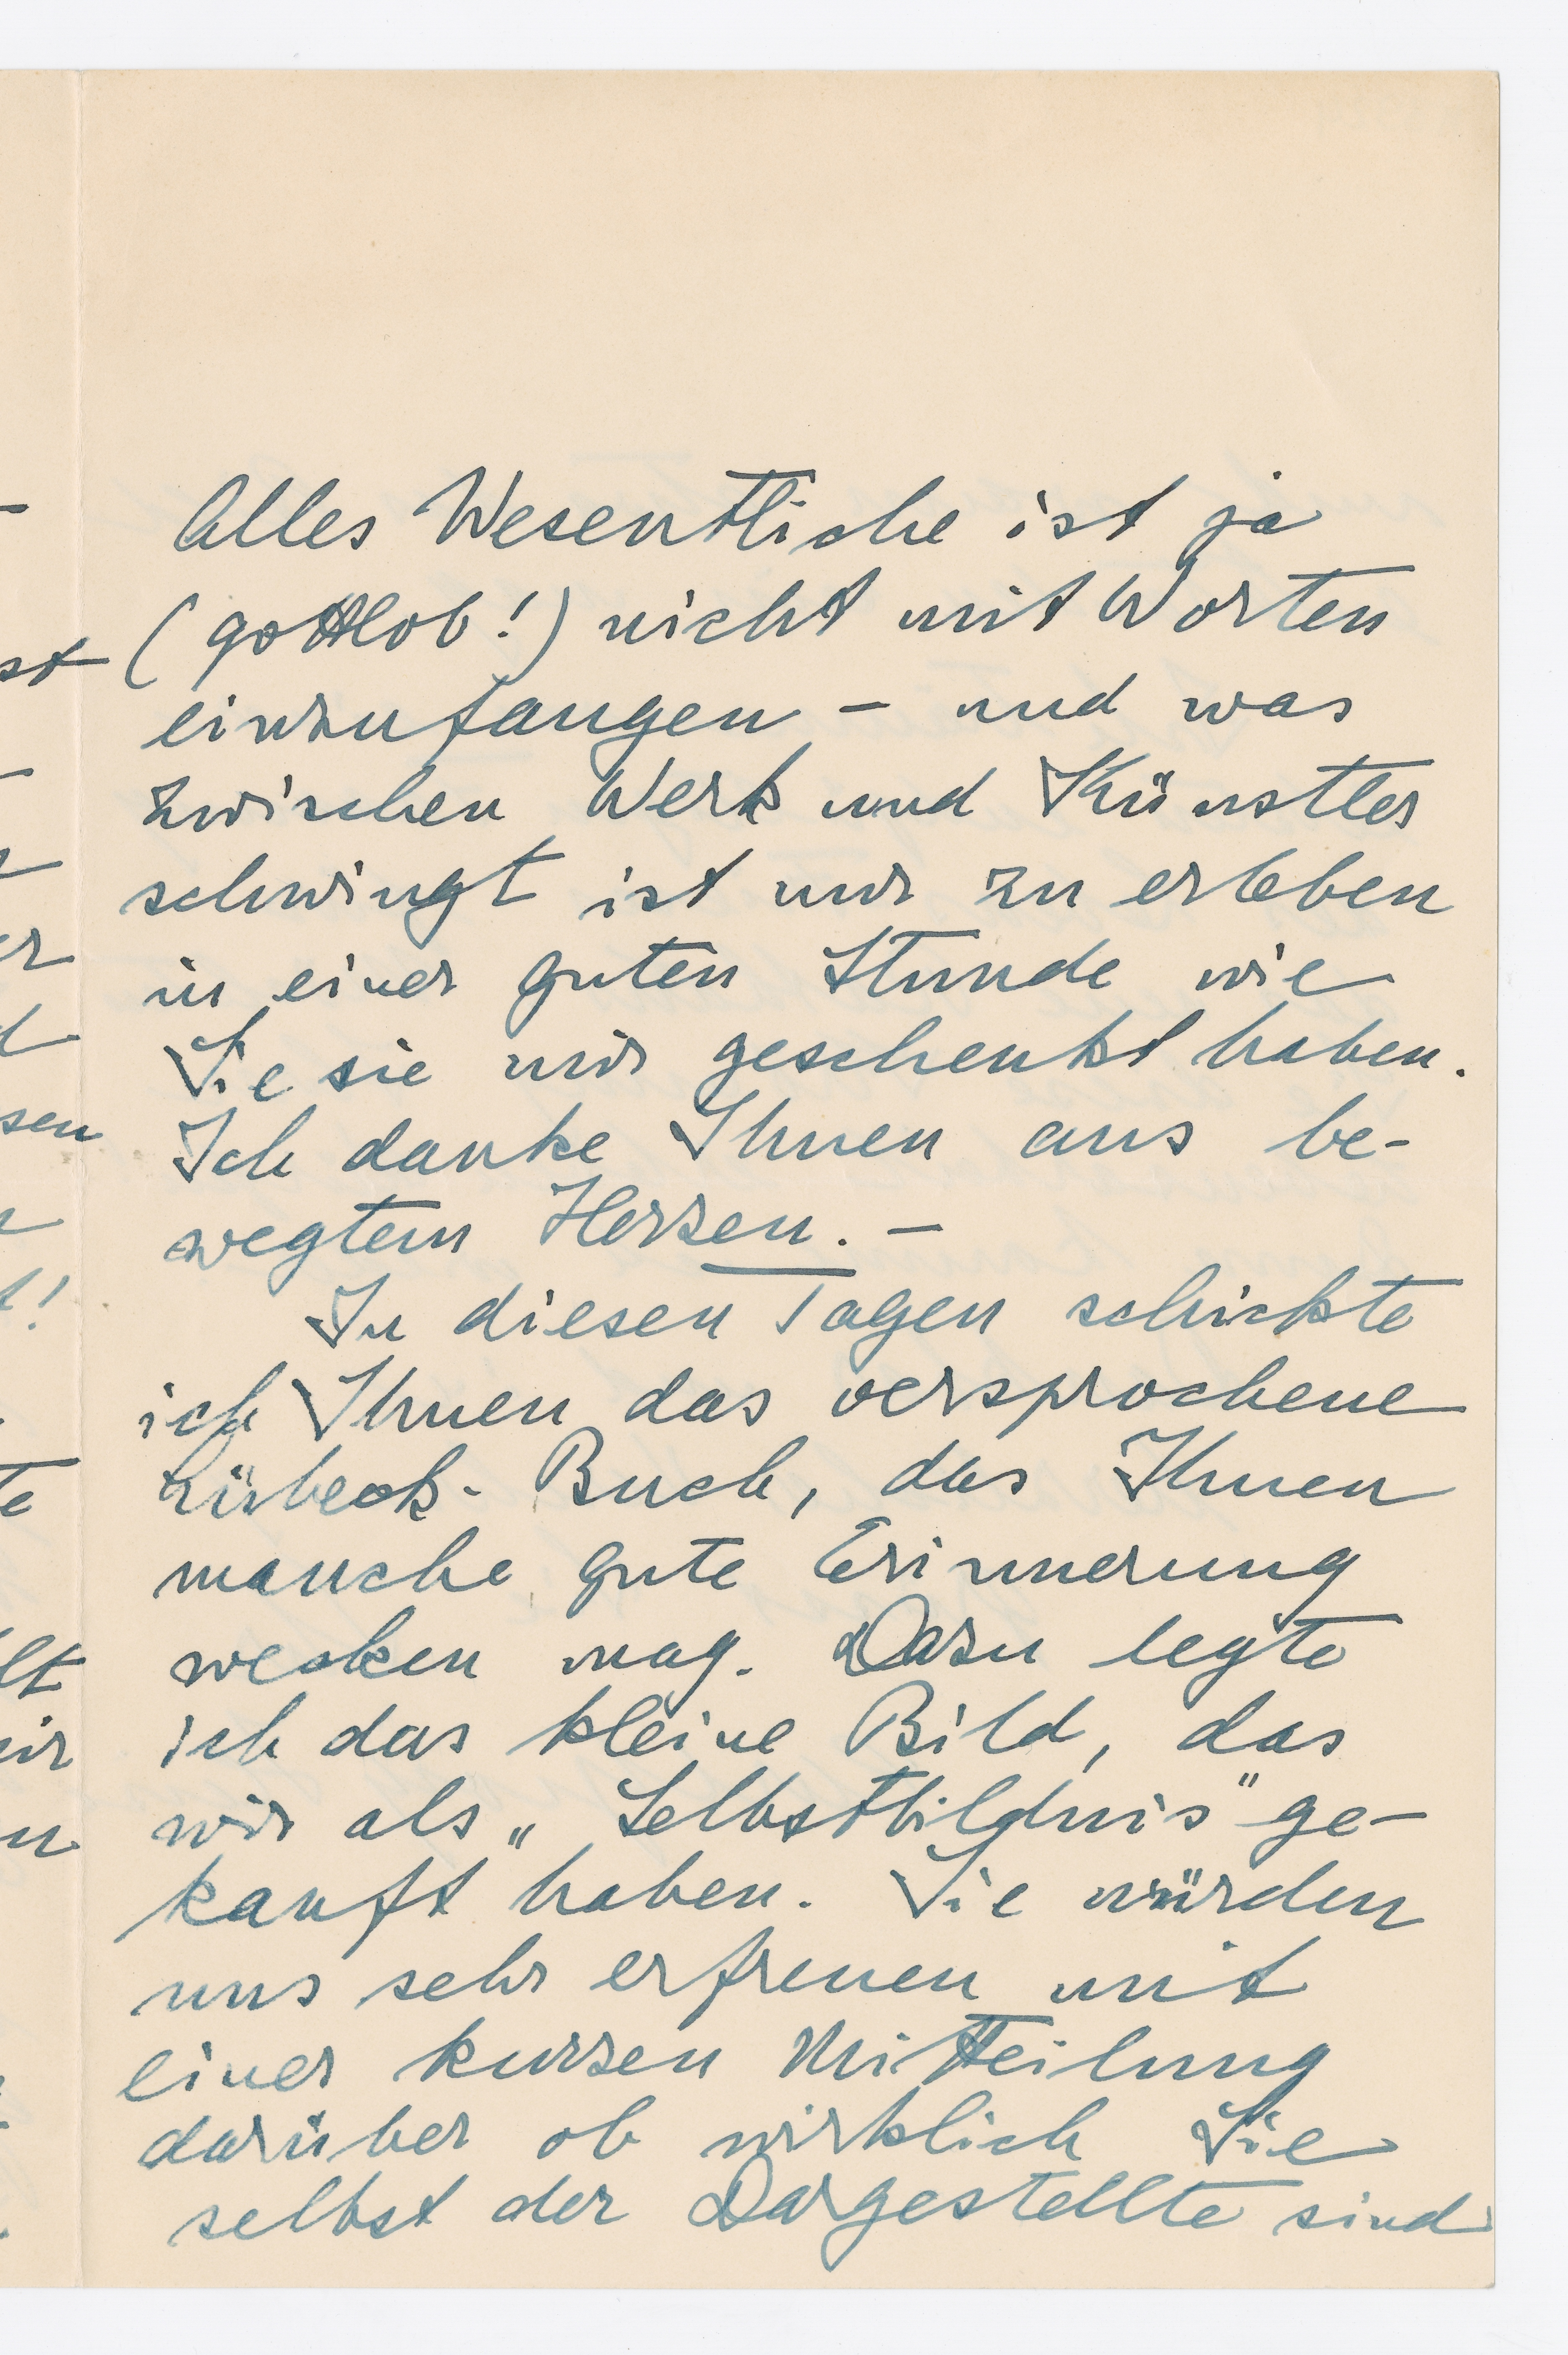 Alles Wesentliche ist ja
(gottlob!) nicht mit Worten
einzufangen – und was
zwischen Werk und Künstler
schwingt ist nur zu erleben
in einer guten Stunde wie
Sie sie mir geschenkt haben.
Ich danke Ihnen aus be-
wegtem Herzen. –
In diesen Tagen schickte
ich Ihnen das versprochene
Lübeck-Buch, das Ihnen
manche gute Erinnerung
wecken mag. Dazu legte
ich das kleine Bild, das
wir als „Selbstbildnis" ge-
kauft haben. Sie würden
uns sehr erfreuen mit
einer kurzen Mitteilung
darüber ob wirklich Sie
selbst der Dargestellte sind